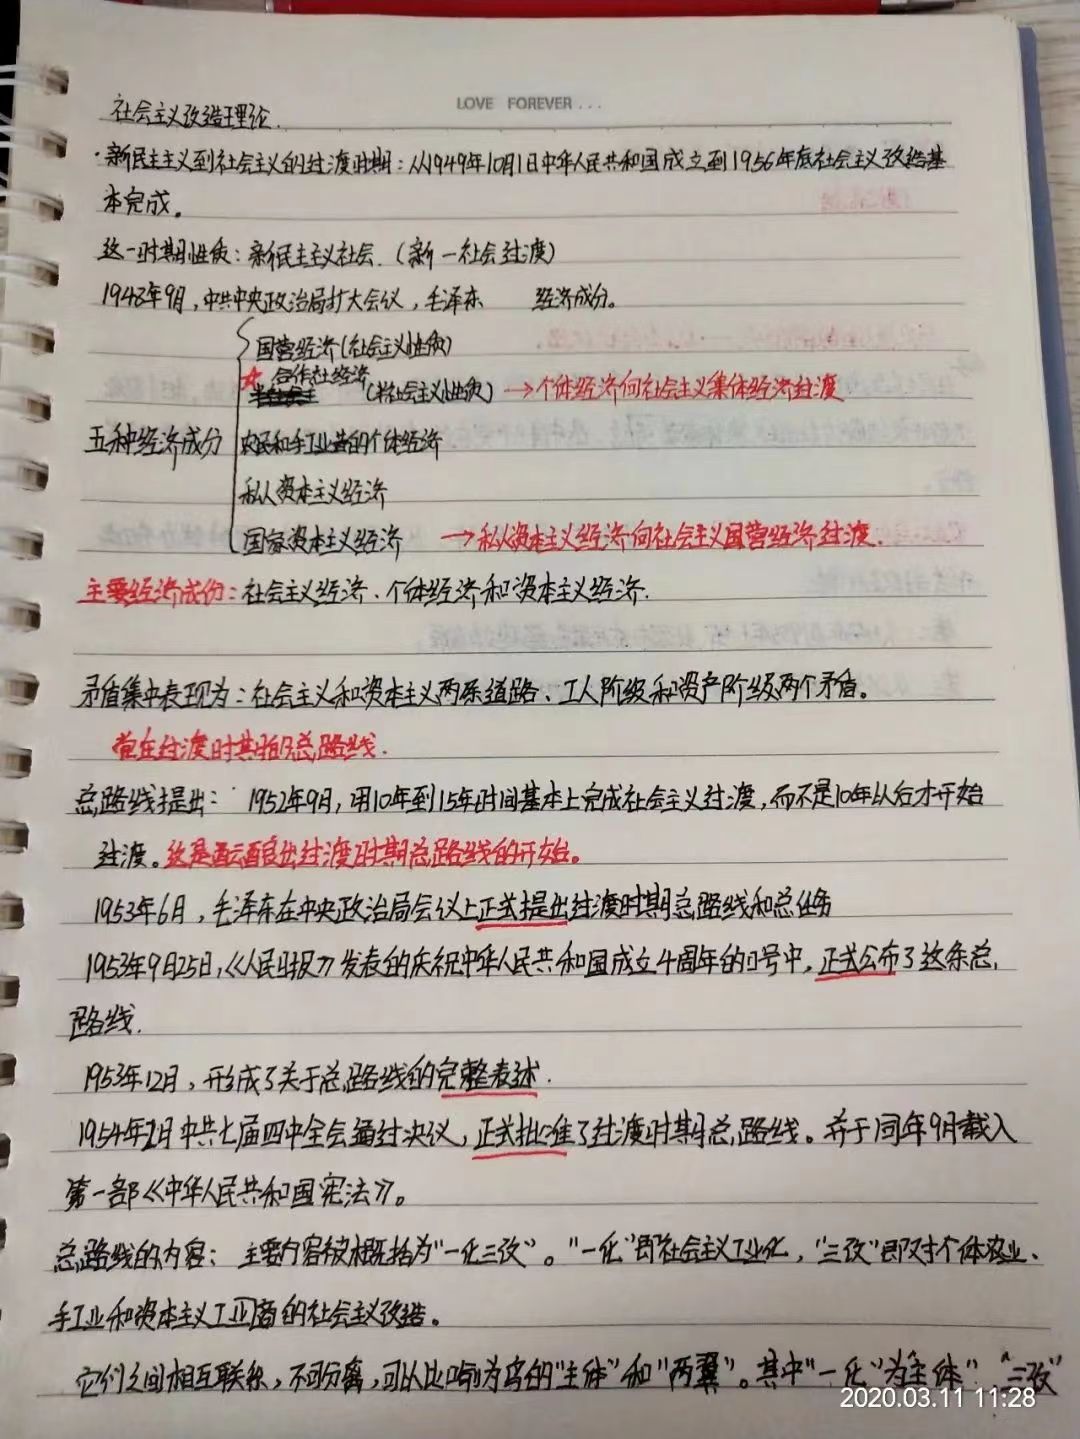 LOVE FOREVER...
社会主义改造理论.
·新民主主义到社会主义的过渡时期：从1949年10月1日中华人民共和国成立到1956年底社会主义改造基
本完成。
这一时期性质：新民主主义社会.（新一社会过渡）
1948年9月，中共中央政治局扩大会议，毛泽东 经济成分。
国营经济（社会主义性质）
☆ 合作社经济
（半社会主义性质）→个体经济向社会主义集体经济过渡
五种经济成分 农民和手工业者的个体经济
私人资本主义经济
国家资本主义经济 →私人资本主义经济向社会主义国营经济过渡.
主要经济成份：社会主义经济、个体经济和资本主义经济.
矛盾集中表现为：社会主义和资本主义两条道路、工人阶级和资产阶级两个矛盾。
党在过渡时期的总路线.
总路线提出：1952年9月，用10年到15年时间基本上完成社会主义过渡，而不是10年以后才开始
过渡。这是酝酿提出过渡时期总路线的开始。
1953年6月，毛泽东在中央政治局会议上正式提出过渡时期总路线和总任务
1953年9月25日，《人民日报》发表的庆祝中华人民共和国成立4周年的口号中，正式公布了这条总
路线.
1953年12月，形成了关于总路线的完整表述.
1954年2月中共七届四中全会通过决议，正式批准了过渡时期总路线。并于同年9月载入
第一部《中华人民共和国宪法》。
总路线的内容：主要内容被概括为“一化三改”。“一化”即社会主义工业化，“三改”即对个体农业、
手工业和资本主义工商的社会主义改造。
它们之间相互联系，不可分离，可以比喻为鸟的“主体”和“两翼”。其中“一化”为主体“，“三改”
2020.03.11 11:28